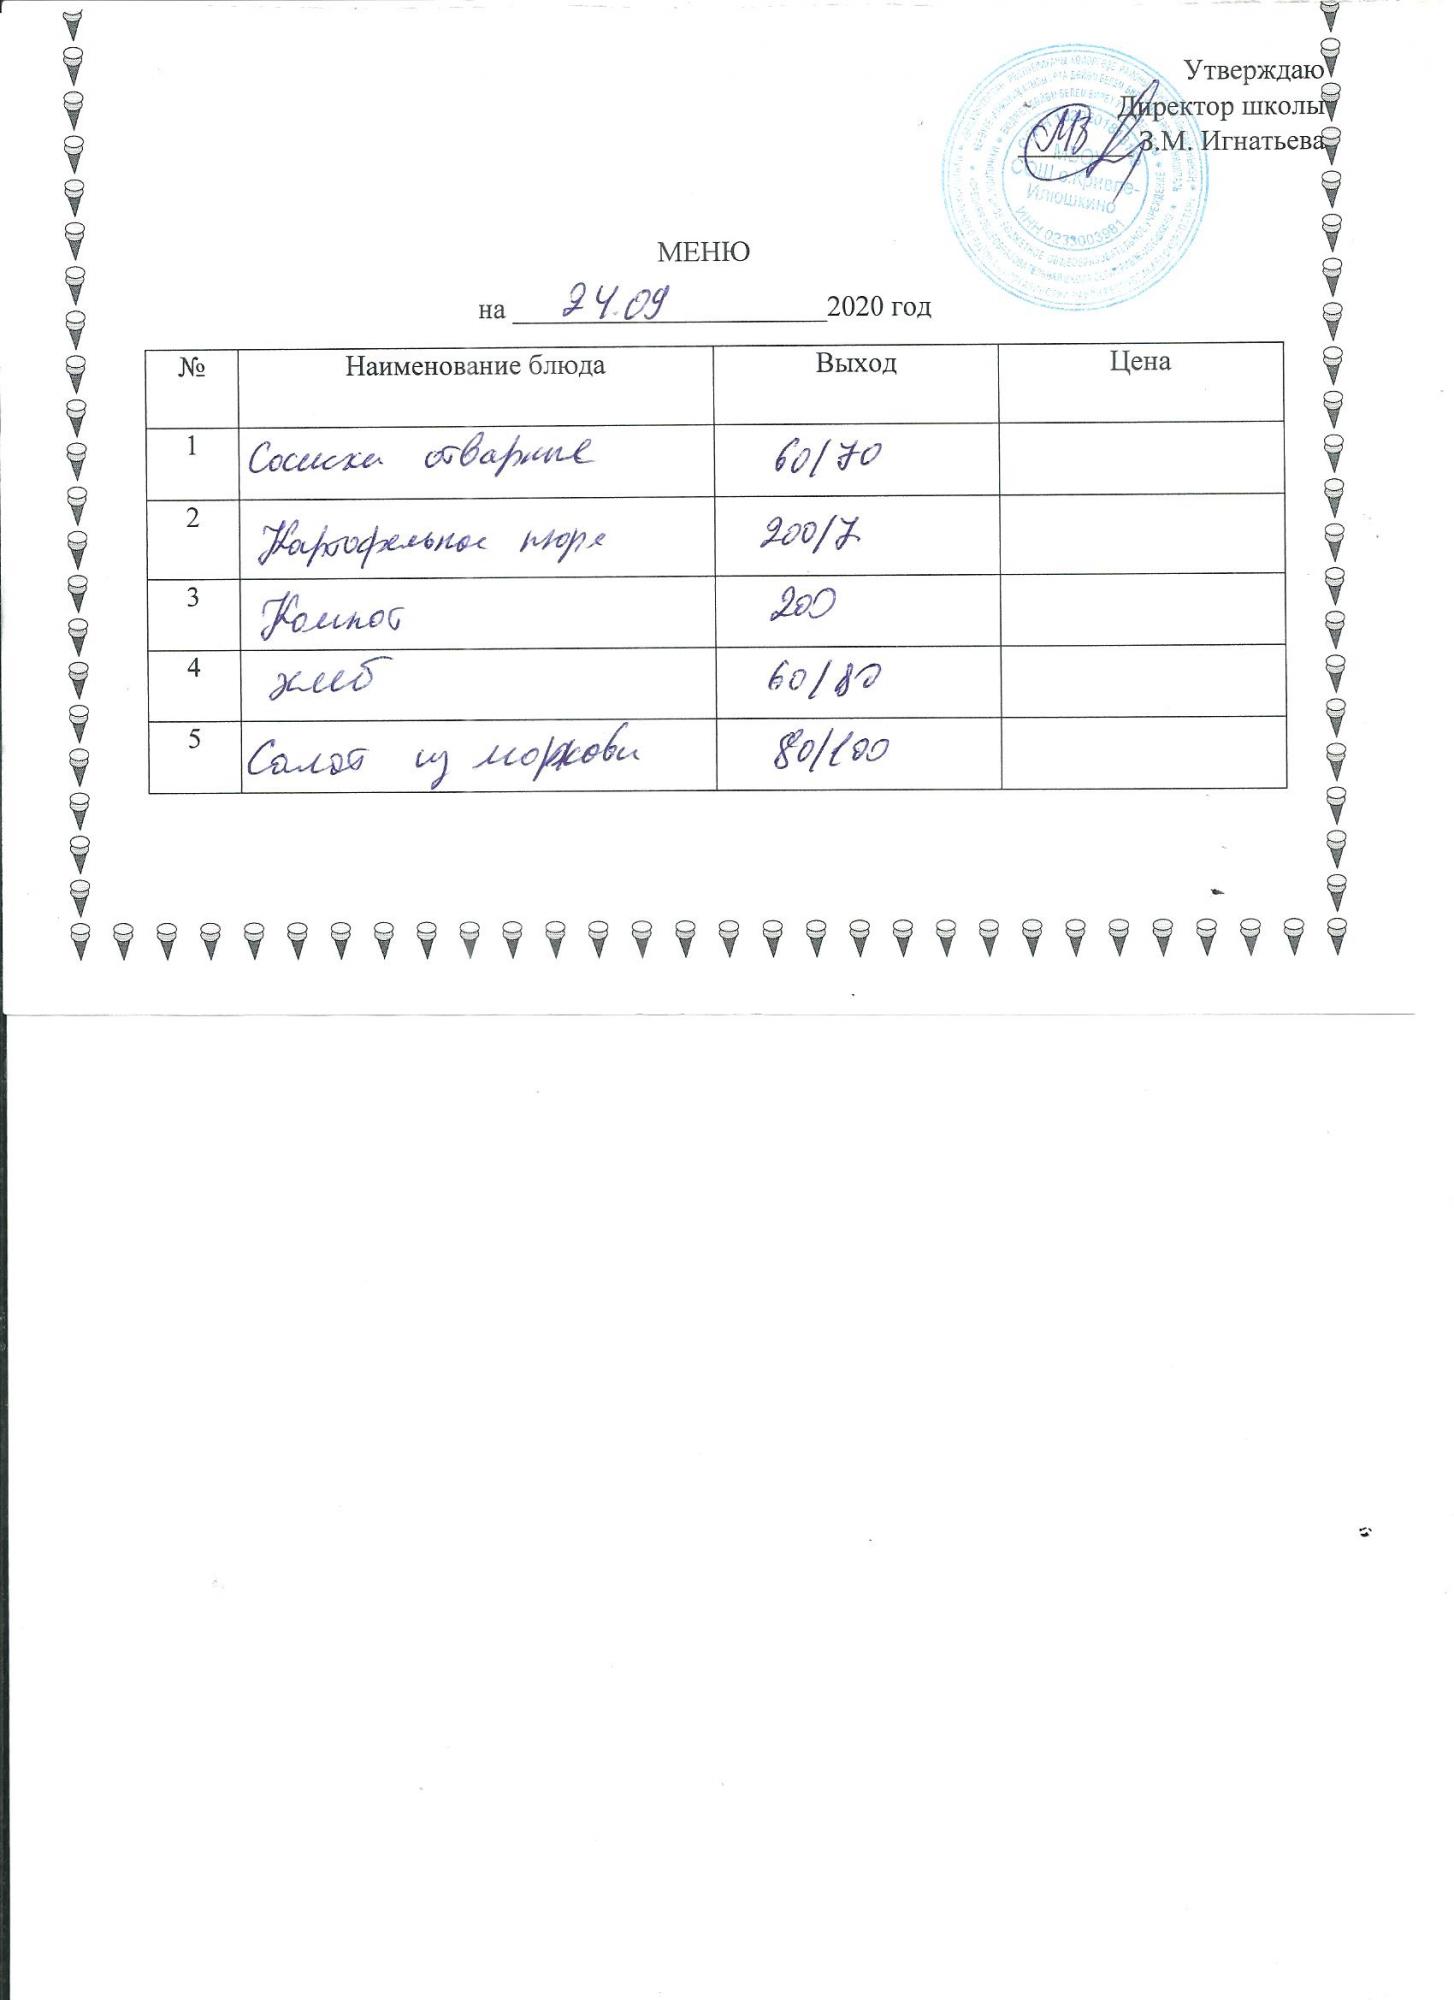 Утверждаю
Директор школы
З.М. Игнатьева
МБОУ
СОШ с.Кривле-
Илюшкино
ИНН 0233003981
МЕНЮ
на 24.09 2020 год
№ Наименование блюда Выход Цена
1 Сосиски отварные 60/70
2 Картофельное пюре 200/7
3 Компот 200
4 хлеб 60/80
5 Салат из моркови 80/100